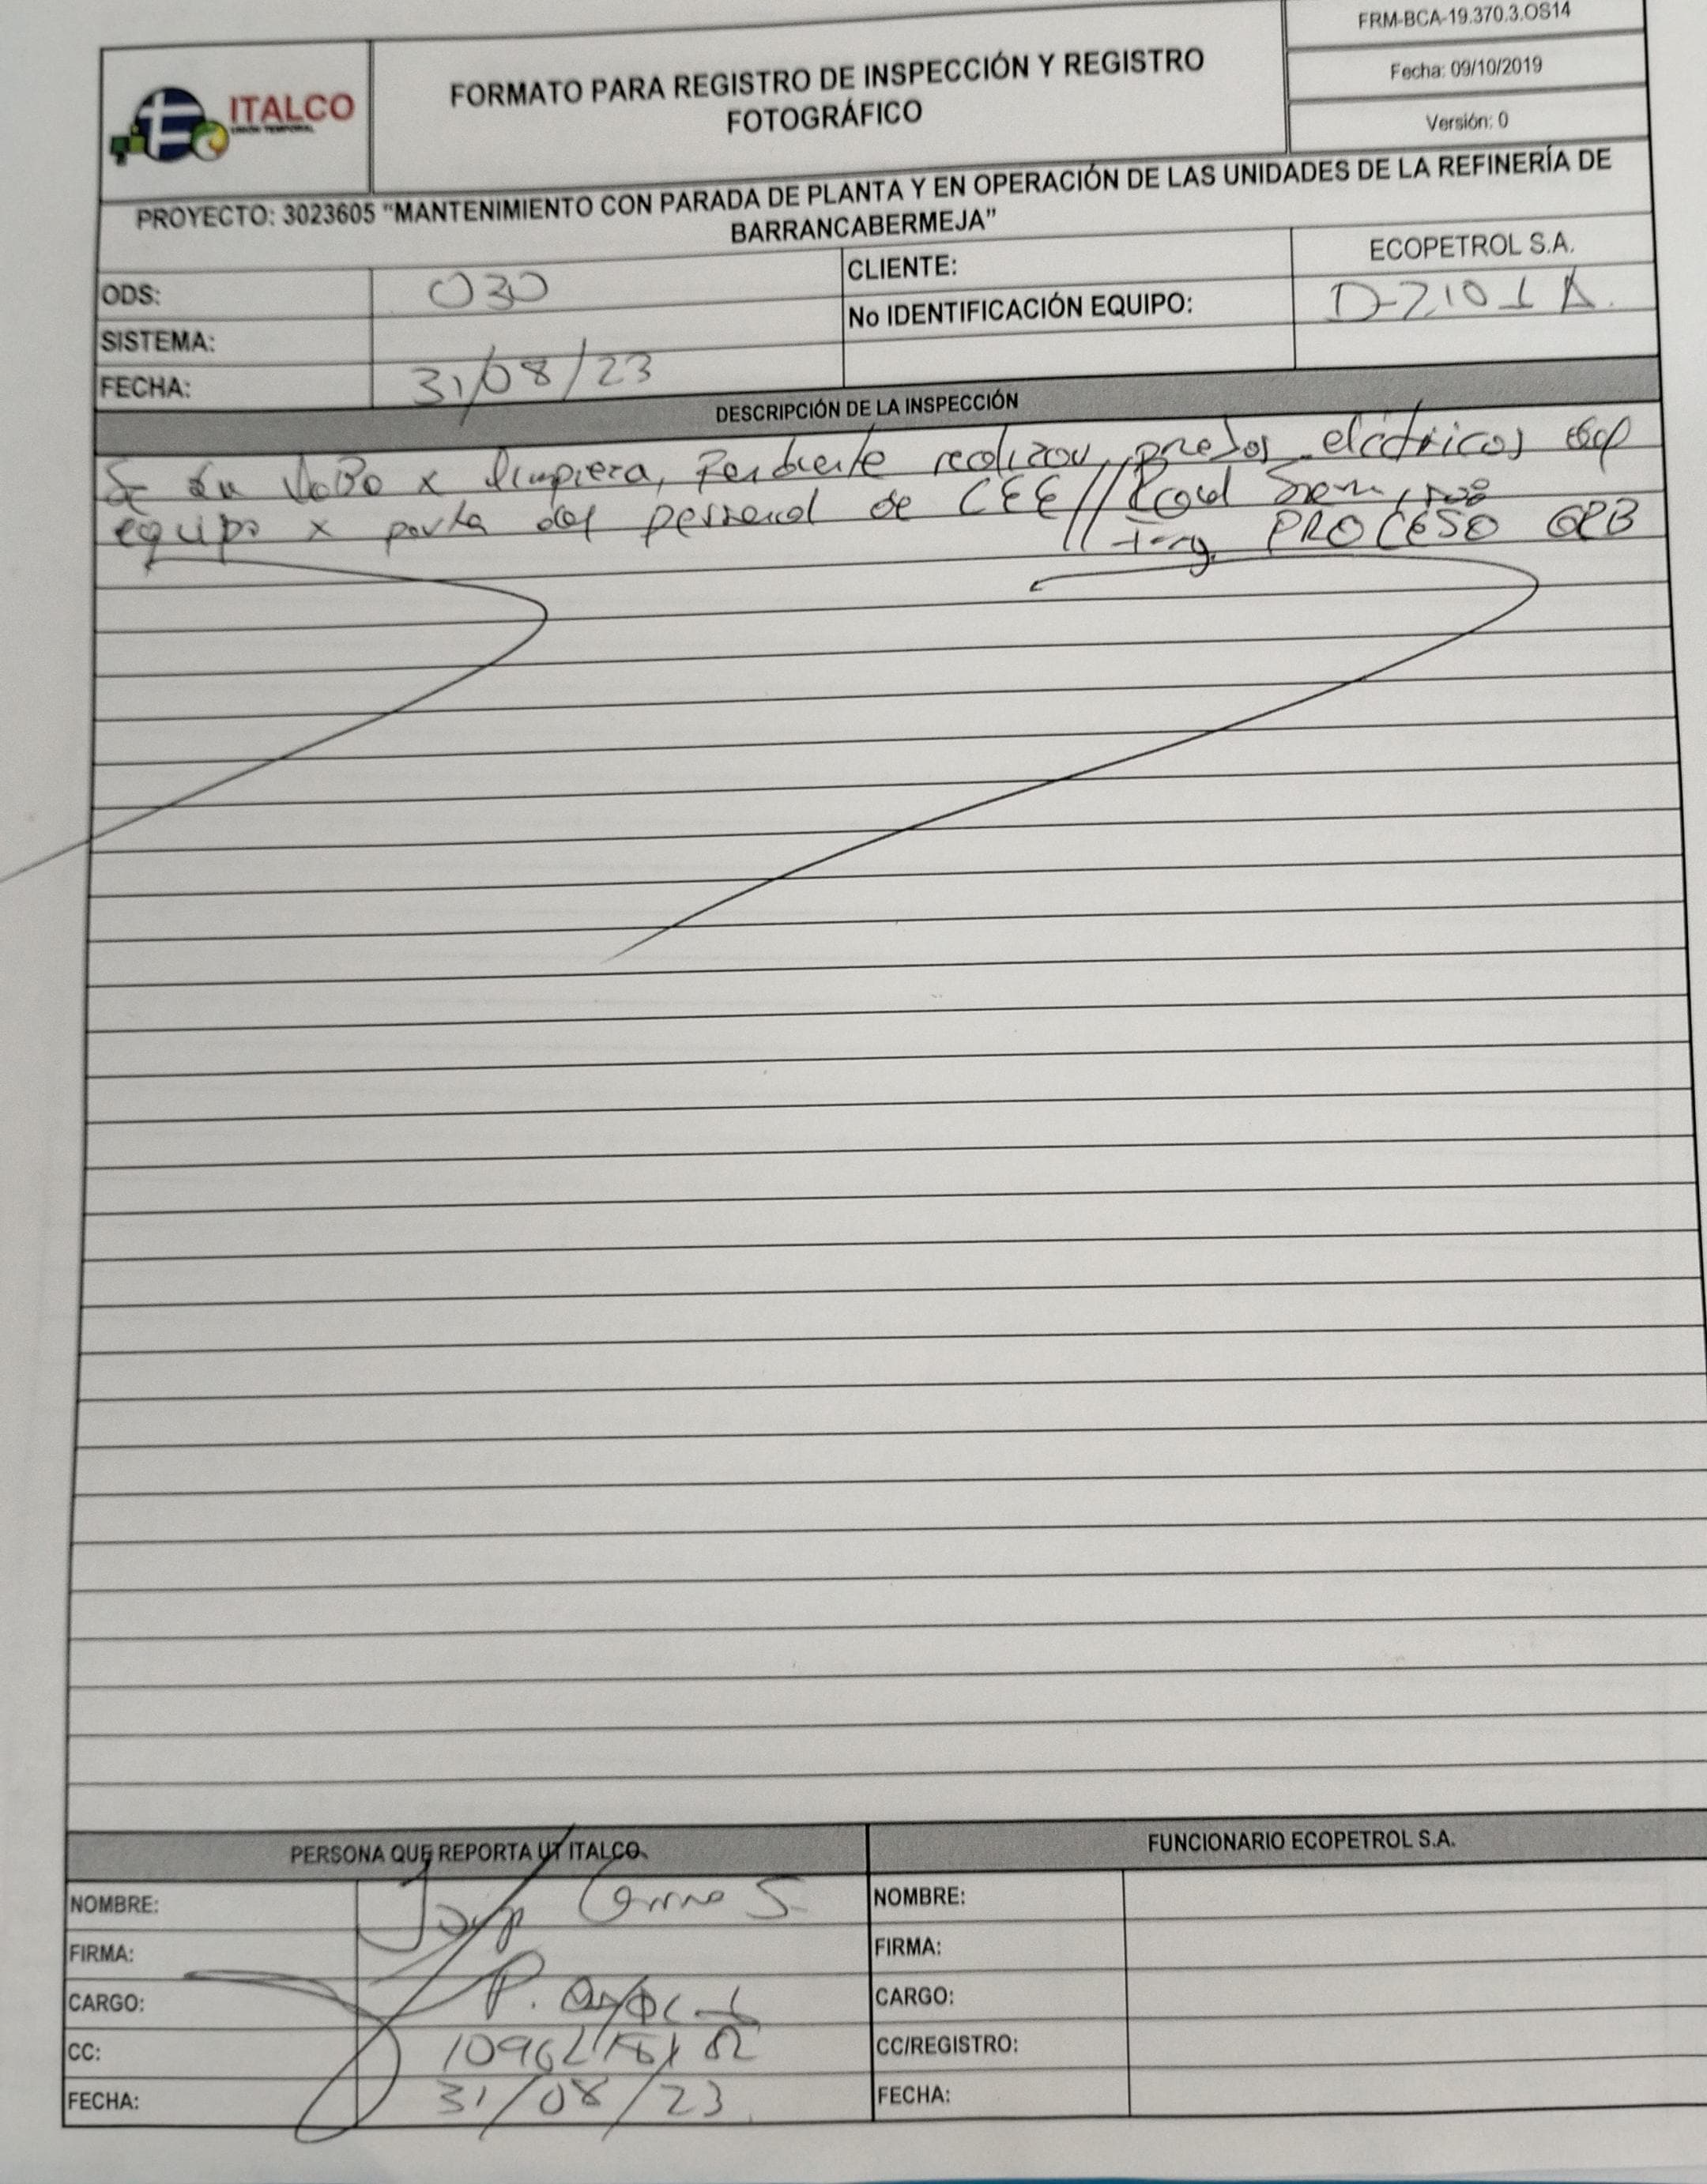 FRM-BCA-19.370.3.OS14
ITALCO
UNIÓN TEMPORAL
FORMATO PARA REGISTRO DE INSPECCIÓN Y REGISTRO
FOTOGRÁFICO
Fecha: 09/10/2019
Versión: 0
PROYECTO: 3023605 "MANTENIMIENTO CON PARADA DE PLANTA Y EN OPERACIÓN DE LAS UNIDADES DE LA REFINERÍA DE
BARRANCABERMEJA"
ODS: 030
CLIENTE: ECOPETROL S.A.
SISTEMA:
No IDENTIFICACIÓN EQUIPO: D-2101A.
FECHA: 31/08/23
DESCRIPCIÓN DE LA INSPECCIÓN
Se da VoBo x limpieza, Pendiente realizar eléctricos
equipo x parte del personal de CEE//
Ing. PROCESO GRB
PERSONA QUE REPORTA UT ITALCO.
FUNCIONARIO ECOPETROL S.A.
NOMBRE:
NOMBRE:
FIRMA:
FIRMA:
CARGO:
CARGO:
CC:
CC/REGISTRO:
FECHA: 31/08/23
FECHA: